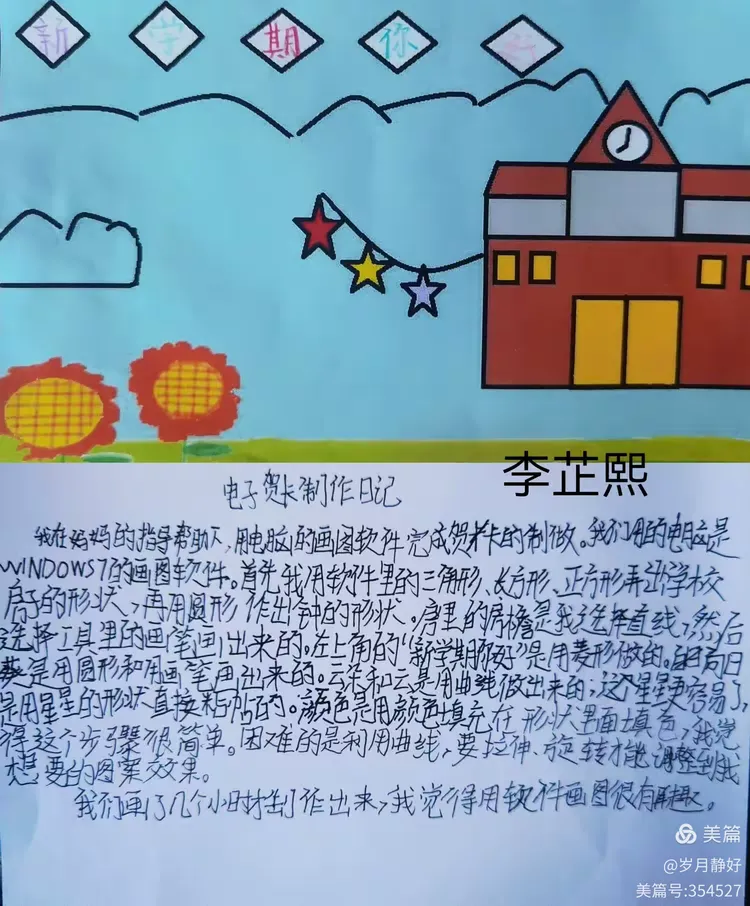 新 学 期 你 好
李芷熙
电子贺卡制作日记
我在妈妈的指导帮助下,用电脑的画图软件完成贺卡的制做。我们用的电脑是
WINDOWS7的画图软件。首先我用软件里的三角形、长方形、正方形弄出学校
房子的形状,再用圆形作出钟的形状。房里的房檐是我选择直线,然后
选择工具里的画笔画出来的。左上角的“新学期你好”是用菱形做的。向日
葵是用圆形和用画笔画出来的。云朵和云是用曲线做出来的;这个星星更容易了,
是用星星的形状直接粘帖的。颜色是用颜色填充在形状里面填色,我觉
得这个步骤很简单。困难的是利用曲线,要拉伸、旋转才能调整到我
想要的图案效果。
我们画了几个小时才制作出来,我觉得用软件画图很有乐趣。
美篇
@岁月静好
美篇号:354527